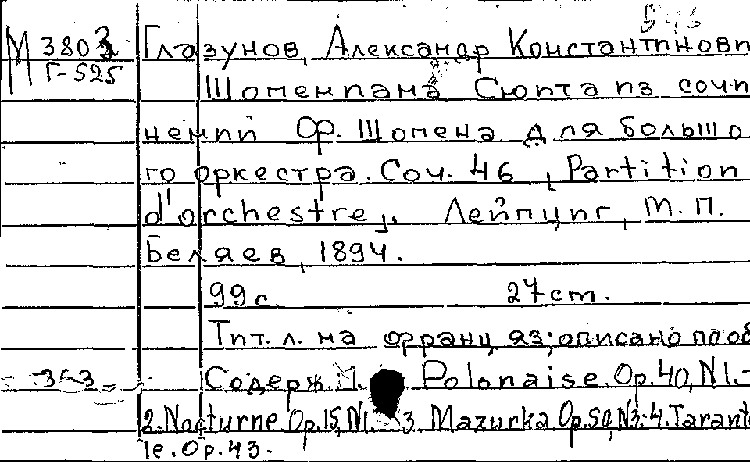 М 3803 Глазунов, Александр Константинови
Г-525 Шопениана Сюита из сочи
нений Фр. Шопена для большо
го оркестра. Соч. 46, Partition
d'orchestre,, Лейпциг, М. П.
Беляев, 1894.
99 с 27 cm.
Тит. л. на франц яз; описано по об
353 Содерж. 1. Polonaise. Op. 40, N1.-
2. Nocturne. Op. 15, N1. 3. Mazurka Op. 50, N3.-4. Tarant
le. Op. 43.